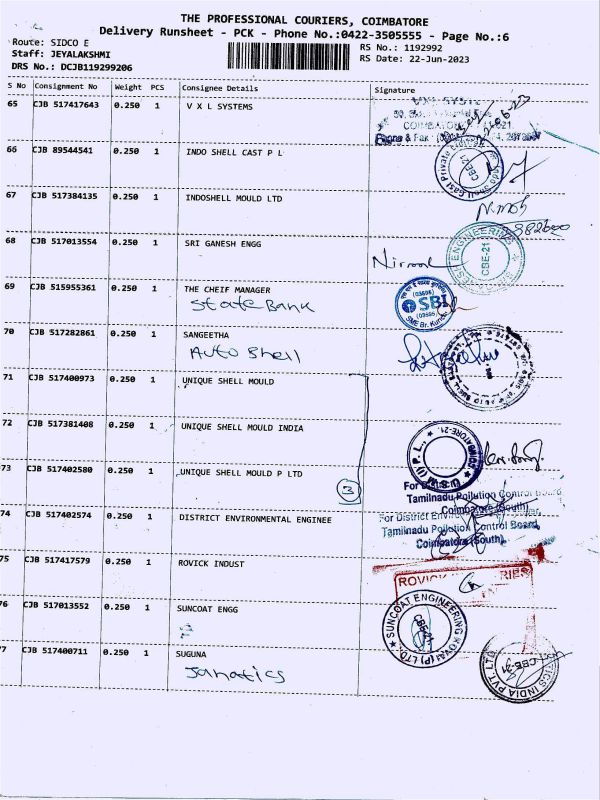 THE PROFESSIONAL COURIERS, COIMBATORE
Delivery Runsheet - PCK - Phone No.:0422-3505555 - Page No.:6
Route: SIDCO E
RS No.: 1192992
Staff: JEYALAKSHMI
RS Date: 22-Jun-2023
DRS No.: DCJB119299206
S No Consignment No Weight PCS Consignee Details Signature
65 CJB 517417643 0.250 1 V X L SYSTEMS
66 CJB 89544541 0.250 1 INDO SHELL CAST P L
CBE-21
67 CJB 517384135 0.250 1 INDOSHELL MOULD LTD
68 CJB 517013554 0.250 1 SRI GANESH ENGG
Nirmal
ENGINEERING
CBE-21
69 CJB 515955361 0.250 1 THE CHEIF MANAGER
State Bank
SBI
70 CJB 517282861 0.250 1 SANGEETHA
Auto Shell
71 CJB 517400973 0.250 1 UNIQUE SHELL MOULD
72 CJB 517381408 0.250 1 UNIQUE SHELL MOULD INDIA
73 CJB 517402580 0.250 1 UNIQUE SHELL MOULD P LTD
3
For District
Tamilnadu Pollution Control Board
Coimbatore (South)
74 CJB 517402574 0.250 1 DISTRICT ENVIRONMENTAL ENGINEE
For District
Tamilnadu Pollution Control Board,
Coimbatore (South).
75 CJB 517417579 0.250 1 ROVICK INDUST
ROVICK
76 CJB 517013552 0.250 1 SUNCOAT ENGG
SUNCOAT ENGINEERING KOVAI (P) LTD.
CBE-21
77 CJB 517400711 0.250 1 SUGUNA
Janatics
CBE-21
INDIA PVT. LTD